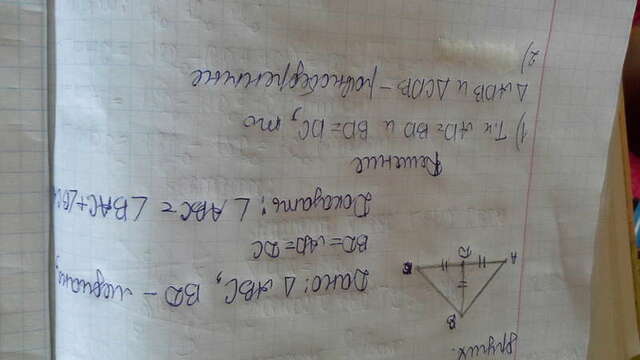 других.
B
A D C
Дано: △ ABC, BD - медиана,
BD = AD = DC
Доказать: ∠ ABC = ∠ BAC + ∠BCA
Решение
1) Т.к AD = BD и BD = DC, то
△ ADB и △ CDB - равнобедренные
2)